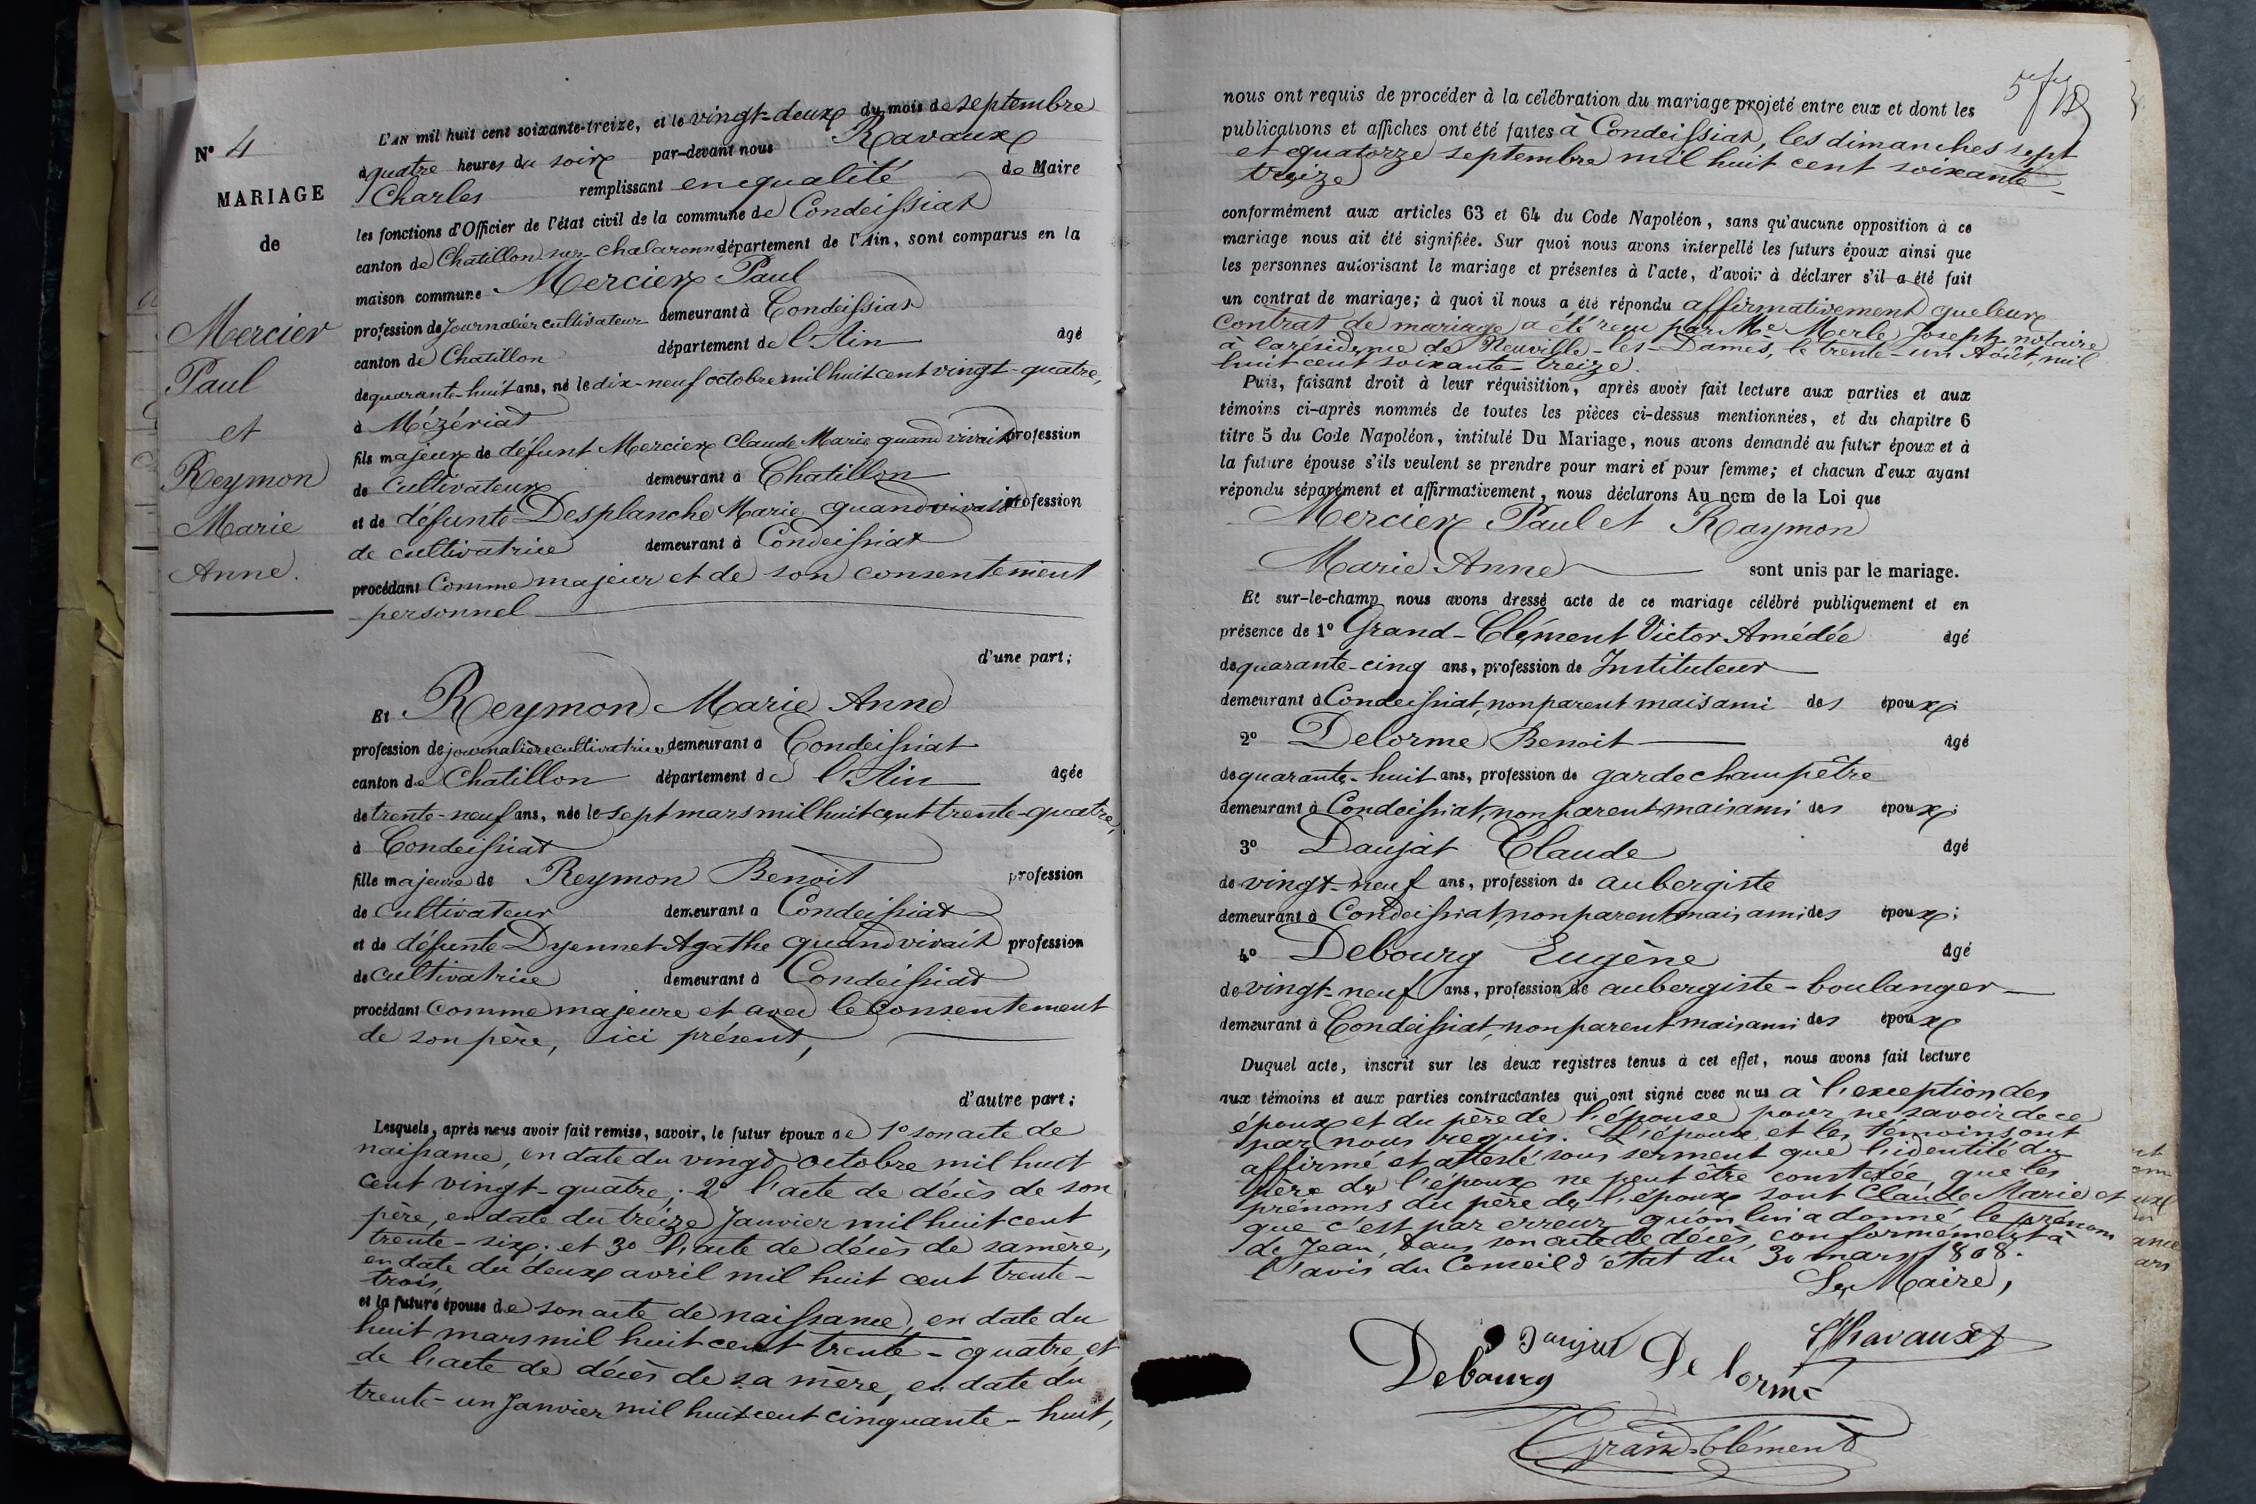 N° 4
MARIAGE
de
Mercier
Paul
et
Reymon
Marie
Anne.
L'AN mil huit cent soixante-treize, et le vingt-deux du mois de septembre
à quatre heures du soir par-devant nous Ravaux
Charles remplissant en qualité de Maire
les fonctions d'Officier de l'état civil de la commune de Condeissiat
canton de Chatillon sur Chalaronne département de l'Ain, sont comparus en la
maison commune Mercier Paul
profession de Journalier cultivateur demeurant à Condeissiat
canton de Chatillon département de l'Ain âgé
de quarante-huit ans, né le dix-neuf octobre mil huit cent vingt-quatre,
à Mézériat
fils majeur de défunt Mercier Claude Marie quand vivait profession
de Cultivateur demeurant à Chatillon
et de défunte Desplanche Marie quand vivait profession
de cultivatrice demeurant à Condeissiat
procédant Comme majeur et de son consentement
personnel
d'une part;
Et Reymon Marie Anne
profession de journalière cultivatrice demeurant à Condeissiat
canton de Chatillon département de l'Ain âgée
de trente-neuf ans, née le sept mars mil huit cent trente-quatre,
à Condeissiat
fille majeure de Reymon Benoit profession
de Cultivateur demeurant à Condeissiat
et de défunte Dyennet Agathe quand vivait profession
de cultivatrice demeurant à Condeissiat
procédant comme majeure et avec le Consentement
de son père, ici présent,
d'autre part;
Lesquels, après nous avoir fait remise, savoir, le futur époux de 1° son acte de
naissance, en date du vingt octobre mil huit
cent vingt-quatre; 2° l'acte de décès de son
père, en date du treize Janvier mil huit cent
trente-six; et 3° l'acte de décès de sa mère,
en date du deux avril mil huit cent trente-
trois,
et la future épouse de son acte de naissance, en date du
huit mars mil huit cent trente-quatre, et
de l'acte de décès de sa mère, en date du
trente-un Janvier mil huit cent cinquante-huit,
nous ont requis de procéder à la célébration du mariage projeté entre eux et dont les
publications et affiches ont été faites à Condeissiat, les dimanches sept
et quatorze septembre mil huit cent soixante-
treize
conformément aux articles 63 et 64 du Code Napoléon, sans qu'aucune opposition à ce
mariage nous ait été signifiée. Sur quoi nous avons interpellé les futurs époux ainsi que
les personnes autorisant le mariage et présentes à l'acte, d'avoir à déclarer s'il a été fait
un contrat de mariage; à quoi il nous a été répondu affirmativement que leur
Contrat de mariage a été reçu par Me Merle Joseph notaire
à la résidence de Neuville-les-Dames, le trente-un Août, mil
huit cent soixante-treize.
Puis, faisant droit à leur réquisition, après avoir fait lecture aux parties et aux
témoins ci-après nommés de toutes les pièces ci-dessus mentionnées, et du chapitre 6
titre 5 du Code Napoléon, intitulé Du Mariage, nous avons demandé au futur époux et à
la future épouse s'ils veulent se prendre pour mari et pour femme; et chacun d'eux ayant
répondu séparément et affirmativement, nous déclarons Au nom de la Loi que
Mercier Paul et Raymon
Marie Anne sont unis par le mariage.
Et sur-le-champ nous avons dressé acte de ce mariage célébré publiquement et en
présence de 1° Grand-Clément Victor Amédée âgé
de quarante-cinq ans, profession de Instituteur
demeurant à Condeissiat, non parent mais ami des époux;
2° Delorme Benoit âgé
de quarante-huit ans, profession de garde champêtre
demeurant à Condeissiat, non parent mais ami des époux;
3° Daujat Claude âgé
de vingt-neuf ans, profession de aubergiste
demeurant à Condeissiat, non parent mais ami des époux;
4° Debourg Eugène âgé
de vingt-neuf ans, profession de aubergiste-boulanger
demeurant à Condeissiat, non parent mais ami des époux
Duquel acte, inscrit sur les deux registres tenus à cet effet, nous avons fait lecture
aux témoins et aux parties contractantes qui ont signé avec nous à l'exception des
époux et du père de l'épouse pour ne savoir de ce
par nous requis. L'époux et les témoins ont
affirmé et attesté sous serment que l'identité du
père de l'époux ne peut être contestée, que les
prénoms du père de l'époux sont Claude Marie et
que c'est par erreur qu'on lui a donné le prénom
de Jean, dans son acte de décès, conformément à
l'avis du Conseil d'état du 30 mars 1808.
Le Maire,
Daujat Ravaux
Debourg Delorme
Grand-Clément